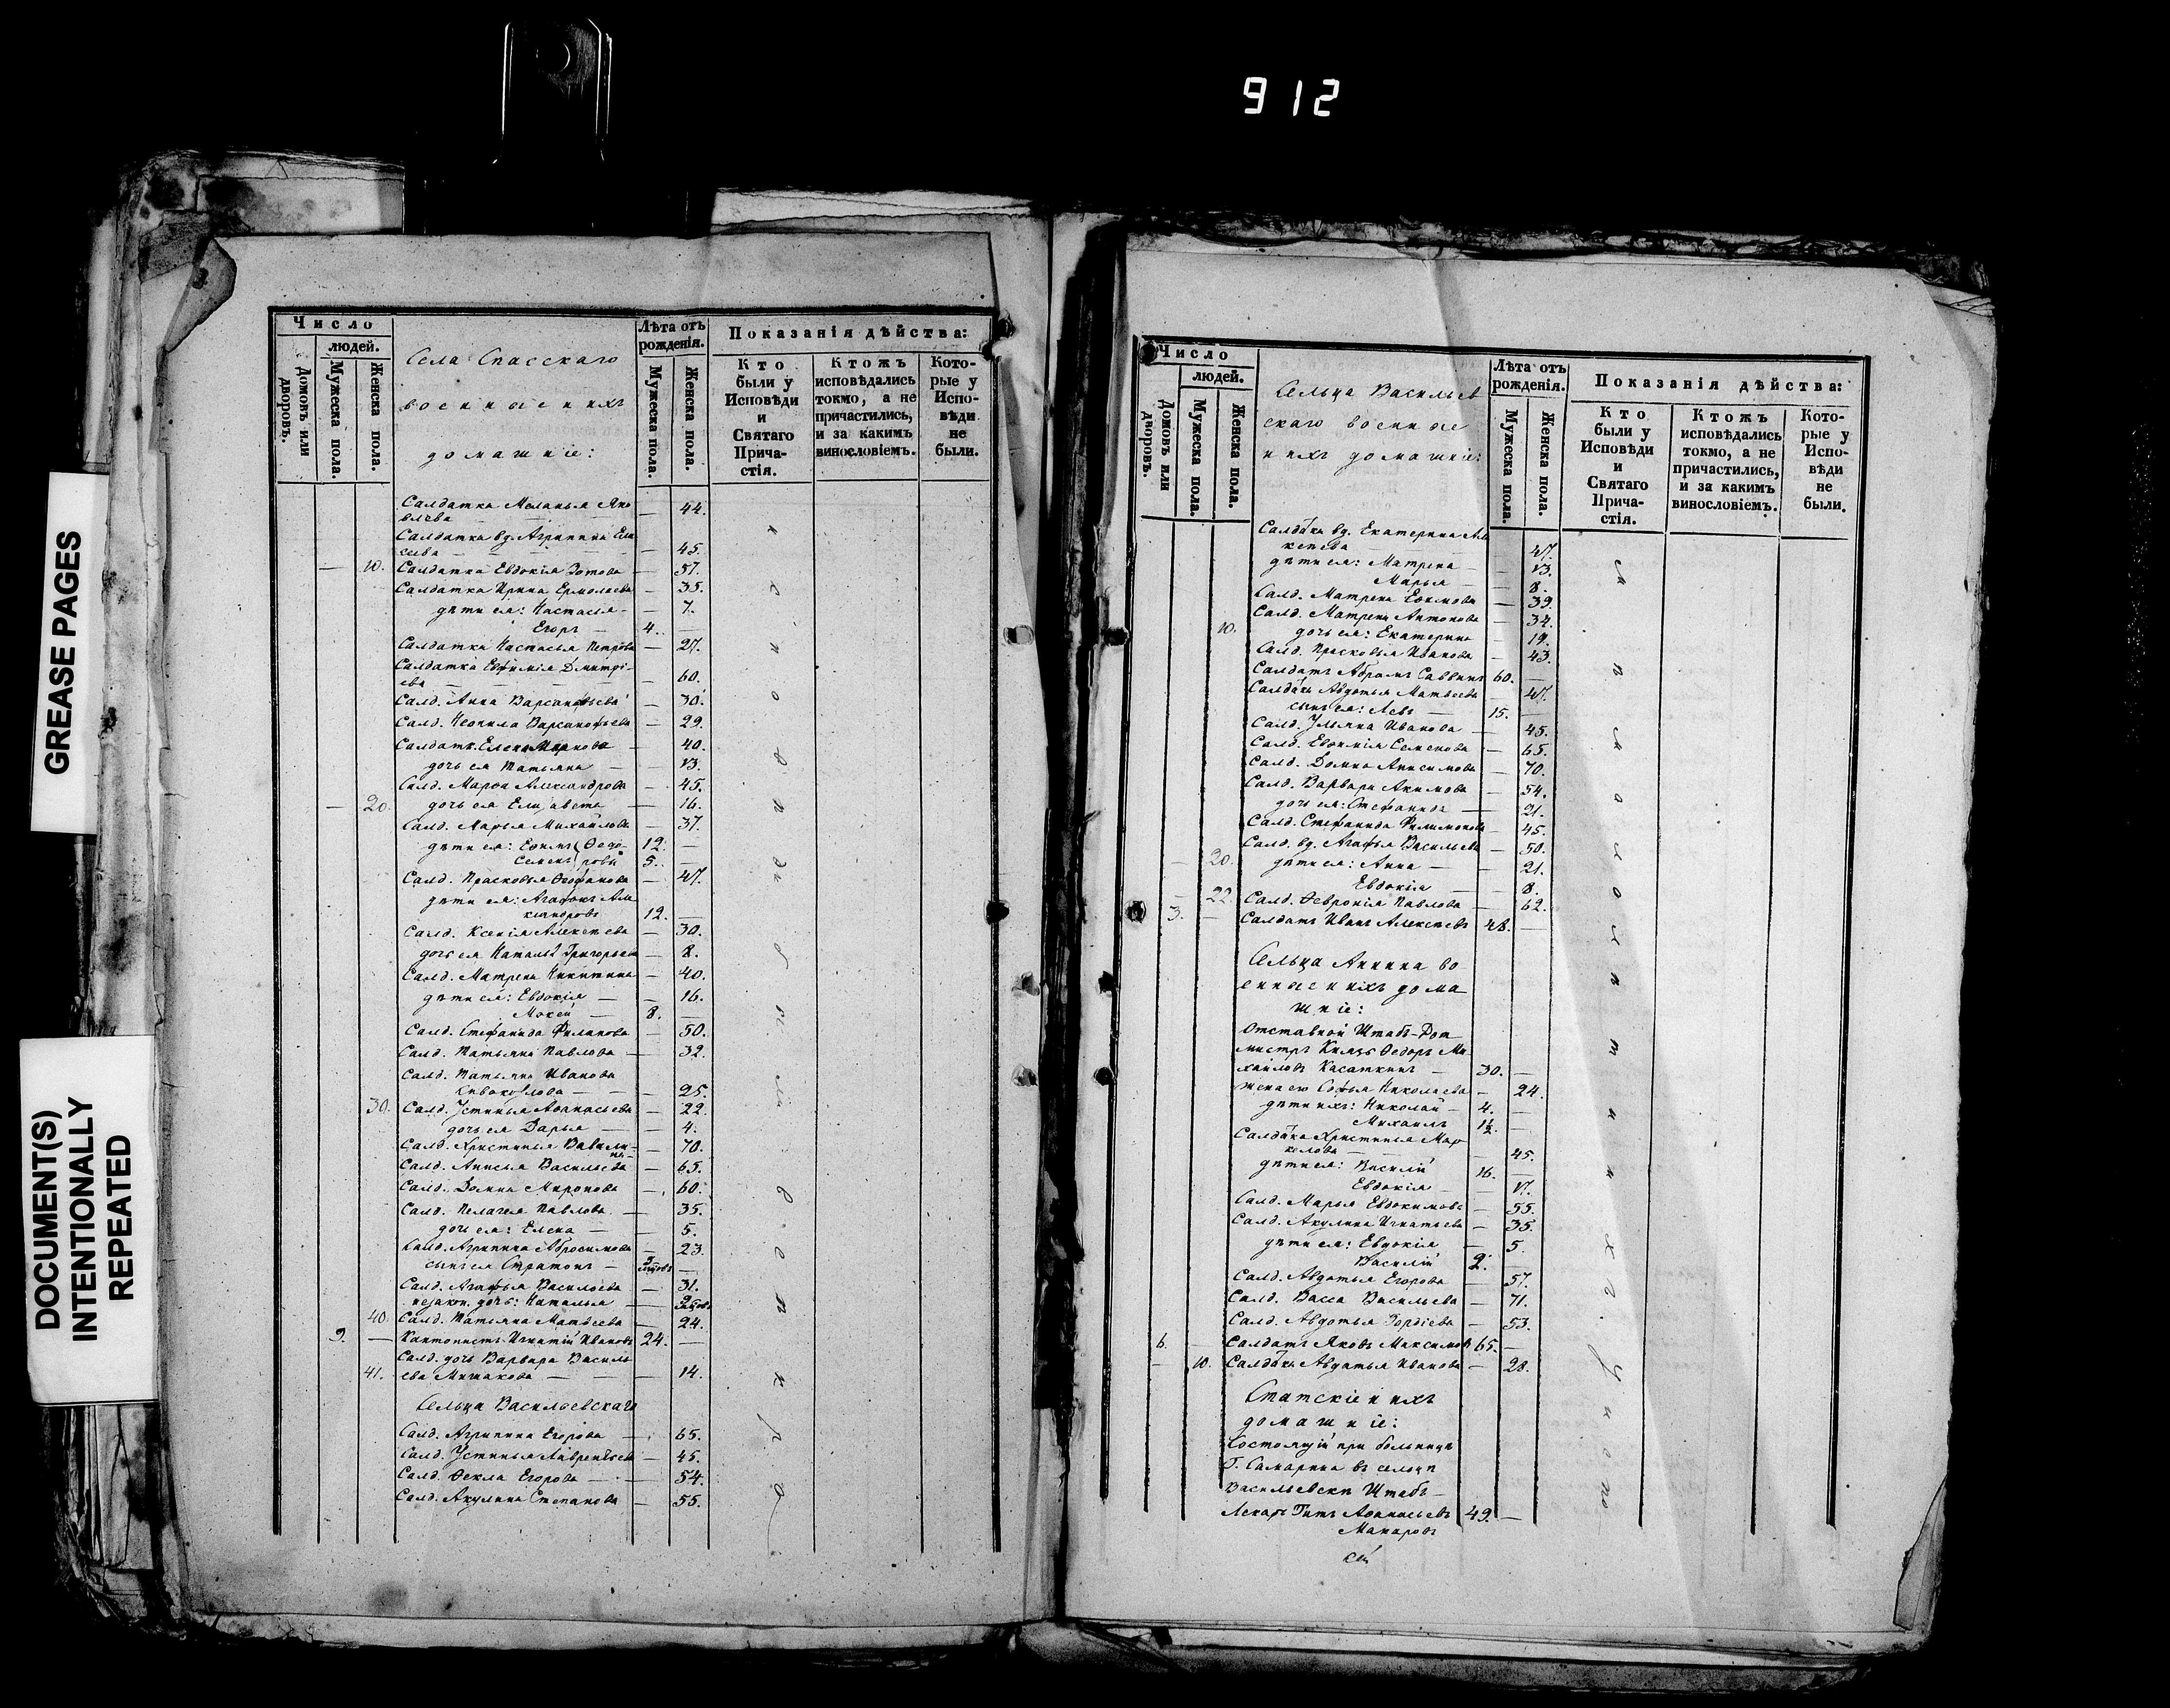 912
GREASE PAGES
DOCUMENT(S)
INTENTIONALLY
REPEATED
Число
людей.
Домовъ или дворовъ.
Мужеска пола.
Женска пола.
Села Спасскаго
военные и ихъ
домашніе:
Лѣта отъ
рожденія.
Мужеска пола.
Женска пола.
Показанія дѣйства:
Кто
были у
Исповѣди
и
Святаго
Прича-
стія.
Ктожъ
исповѣдались
токмо, а не
причастились,
и за какимъ
винословіемъ.
Кото-
рые у
Испо-
вѣди
не
были.
Салдатка Меланья Яко
влева — 44.
Салдатка вд. Агрипина Ели
сеева — 45.
— 10. Салдатка Евдокія Зотова — 57.
Салдатка Ирина Ермолаева — 35.
дѣти ея: Настасья — 7.
Егоръ — 4. —
Салдатка Настасья Петрова — 27.
Салдатка Евфимія Дмитрі-
ева — 60.
Салд. Анна Варсанофьева — 30.
Салд. Неонила Варсанофьева — 29.
Салдатк. Елена — 40.
дочь ея Татьяна — 13.
Салд. Марѳа Александрова — 45.
— 20. дочь ея Елизавета — 16.
Салд. Марья Михайлова — 37.
дѣти ея: Еѳимъ Ѳедо- 12. —
Семенъ ровы 5. —
Салд. Прасковья Ѳеофанова — 47.
дѣти ея: Агафонъ Але
ксандровъ 12. —
Салд. Ксенія Алексѣева — 30.
дочь ея Наталья Григорьева — 8.
Салд. Матрена Никитина — 40.
дѣти ея: Евдокія — 16.
Мокей — 8. —
Салд. Стефанида Филипова — 50.
Салд. Татьяна Павлова — 32.
Салд. Татьяна Иванова
— 25.
30. Салд. Устинья Аѳанасьева — 22.
дочь ея Дарья — 4.
Салд. Христинья Вавили-
на — 70.
Салд. Анисья Васильева — 65.
Салд. Домна Миронова — 60.
Салд. Пелагея Павлова — 35.
дочь ея: Елена — 5.
Салд. Агрипина Абросимова — 23.
сынъ ея Стратонъ —
Салд. Агафья Васильева — 31.
незакон. дочь: Наталья —
40. Салд. Татьяна Матвеева — 24.
9. — Кантонистъ Игнатій Ивановъ 24. —
Салд. дочь Варвара Василь
41. ева Мишакова — 14.
Сельца Васильевскаго
Салд. Агрипина Егорова — 65.
Салд. Устинья Лаврентьева — 45.
Салд. Ѳекла Егорова — 54.
Салд. Акулина Степанова — 55.
Число
людей.
Домовъ или дворовъ.
Мужеска пола.
Женска пола.
Сельца Васильев
скаго военные
и ихъ домашніе:
Лѣта отъ
рожденія.
Мужеска пола.
Женска пола.
Показанія дѣйства:
Кто
были у
Исповѣди
и
Святаго
Прича-
стія.
Ктожъ
исповѣдались
токмо, а не
причастились,
и за какимъ
винословіемъ.
Кото-
рые у
Испо-
вѣди
не
были.
Салдатка вд. Екатерина Але
ксѣева — 47.
дѣти ея: Матрена — 13.
Марья — 8.
Салд. Матрена Еѳимова — 39.
Салд. Матрена Антонова — 34.
10. дочь ея: Екатерина — 19.
Салд. Прасковья Иванова — 43.
Салдатъ Абрамъ Саввинъ 60. —
Салдатка Авдотья Матвеева — 47.
сынъ ея: Левъ — 15. —
Салд. Ульяна Иванова — 45.
Салд. Евѳимія Семенова — 65.
Салд. Домна Анисимова — 70.
Салд. Варвара Акимова — 54.
дочь ея: Стефанида — 21.
Салд. Стефанида Филимонова — 45.
Салд. вд. Агафья Васильева — 50.
— 20. дѣти ея: Анна — 21.
Евдокія — 8.
— 22. Салд. Ѳевронія Павлова — 62.
3. — Салдатъ Иванъ Алексѣевъ 48. —
Сельца Аннина во
енные и ихъ дома
шніе:
Отставной Штабъ-Рот
мистръ Князь Ѳедоръ Ми
хайловъ Касаткинъ — 30. —
жена его Софья Николаева — 24.
дѣти ихъ: Николай — 4. —
Михаилъ 1½. —
Салдатка Христинья Мар
келова — 45.
дѣти ея: Василій 16. —
Евдокія — 17.
Салд. Марья Евдокимова — 55.
Салд. Акулина Игнатьева — 35.
дѣти ея: Евдокія — 5.
Василій 2. —
Салд. Авдотья Егорова — 57.
Салд. Васса Васильева — 71.
Салд. Авдотья Гордіева — 53.
6. — Салдатъ Яковъ Максимовъ 65. —
— 10. Салдатка Авдотья Иванова — 28.
Статскіе и ихъ
домашніе:
Состоящій при больницѣ
Г. Самарина въ сельцѣ
Васильевскѣ Штабъ-
Лекарь Титъ Аѳанасьевъ 49. —
Макаровъ